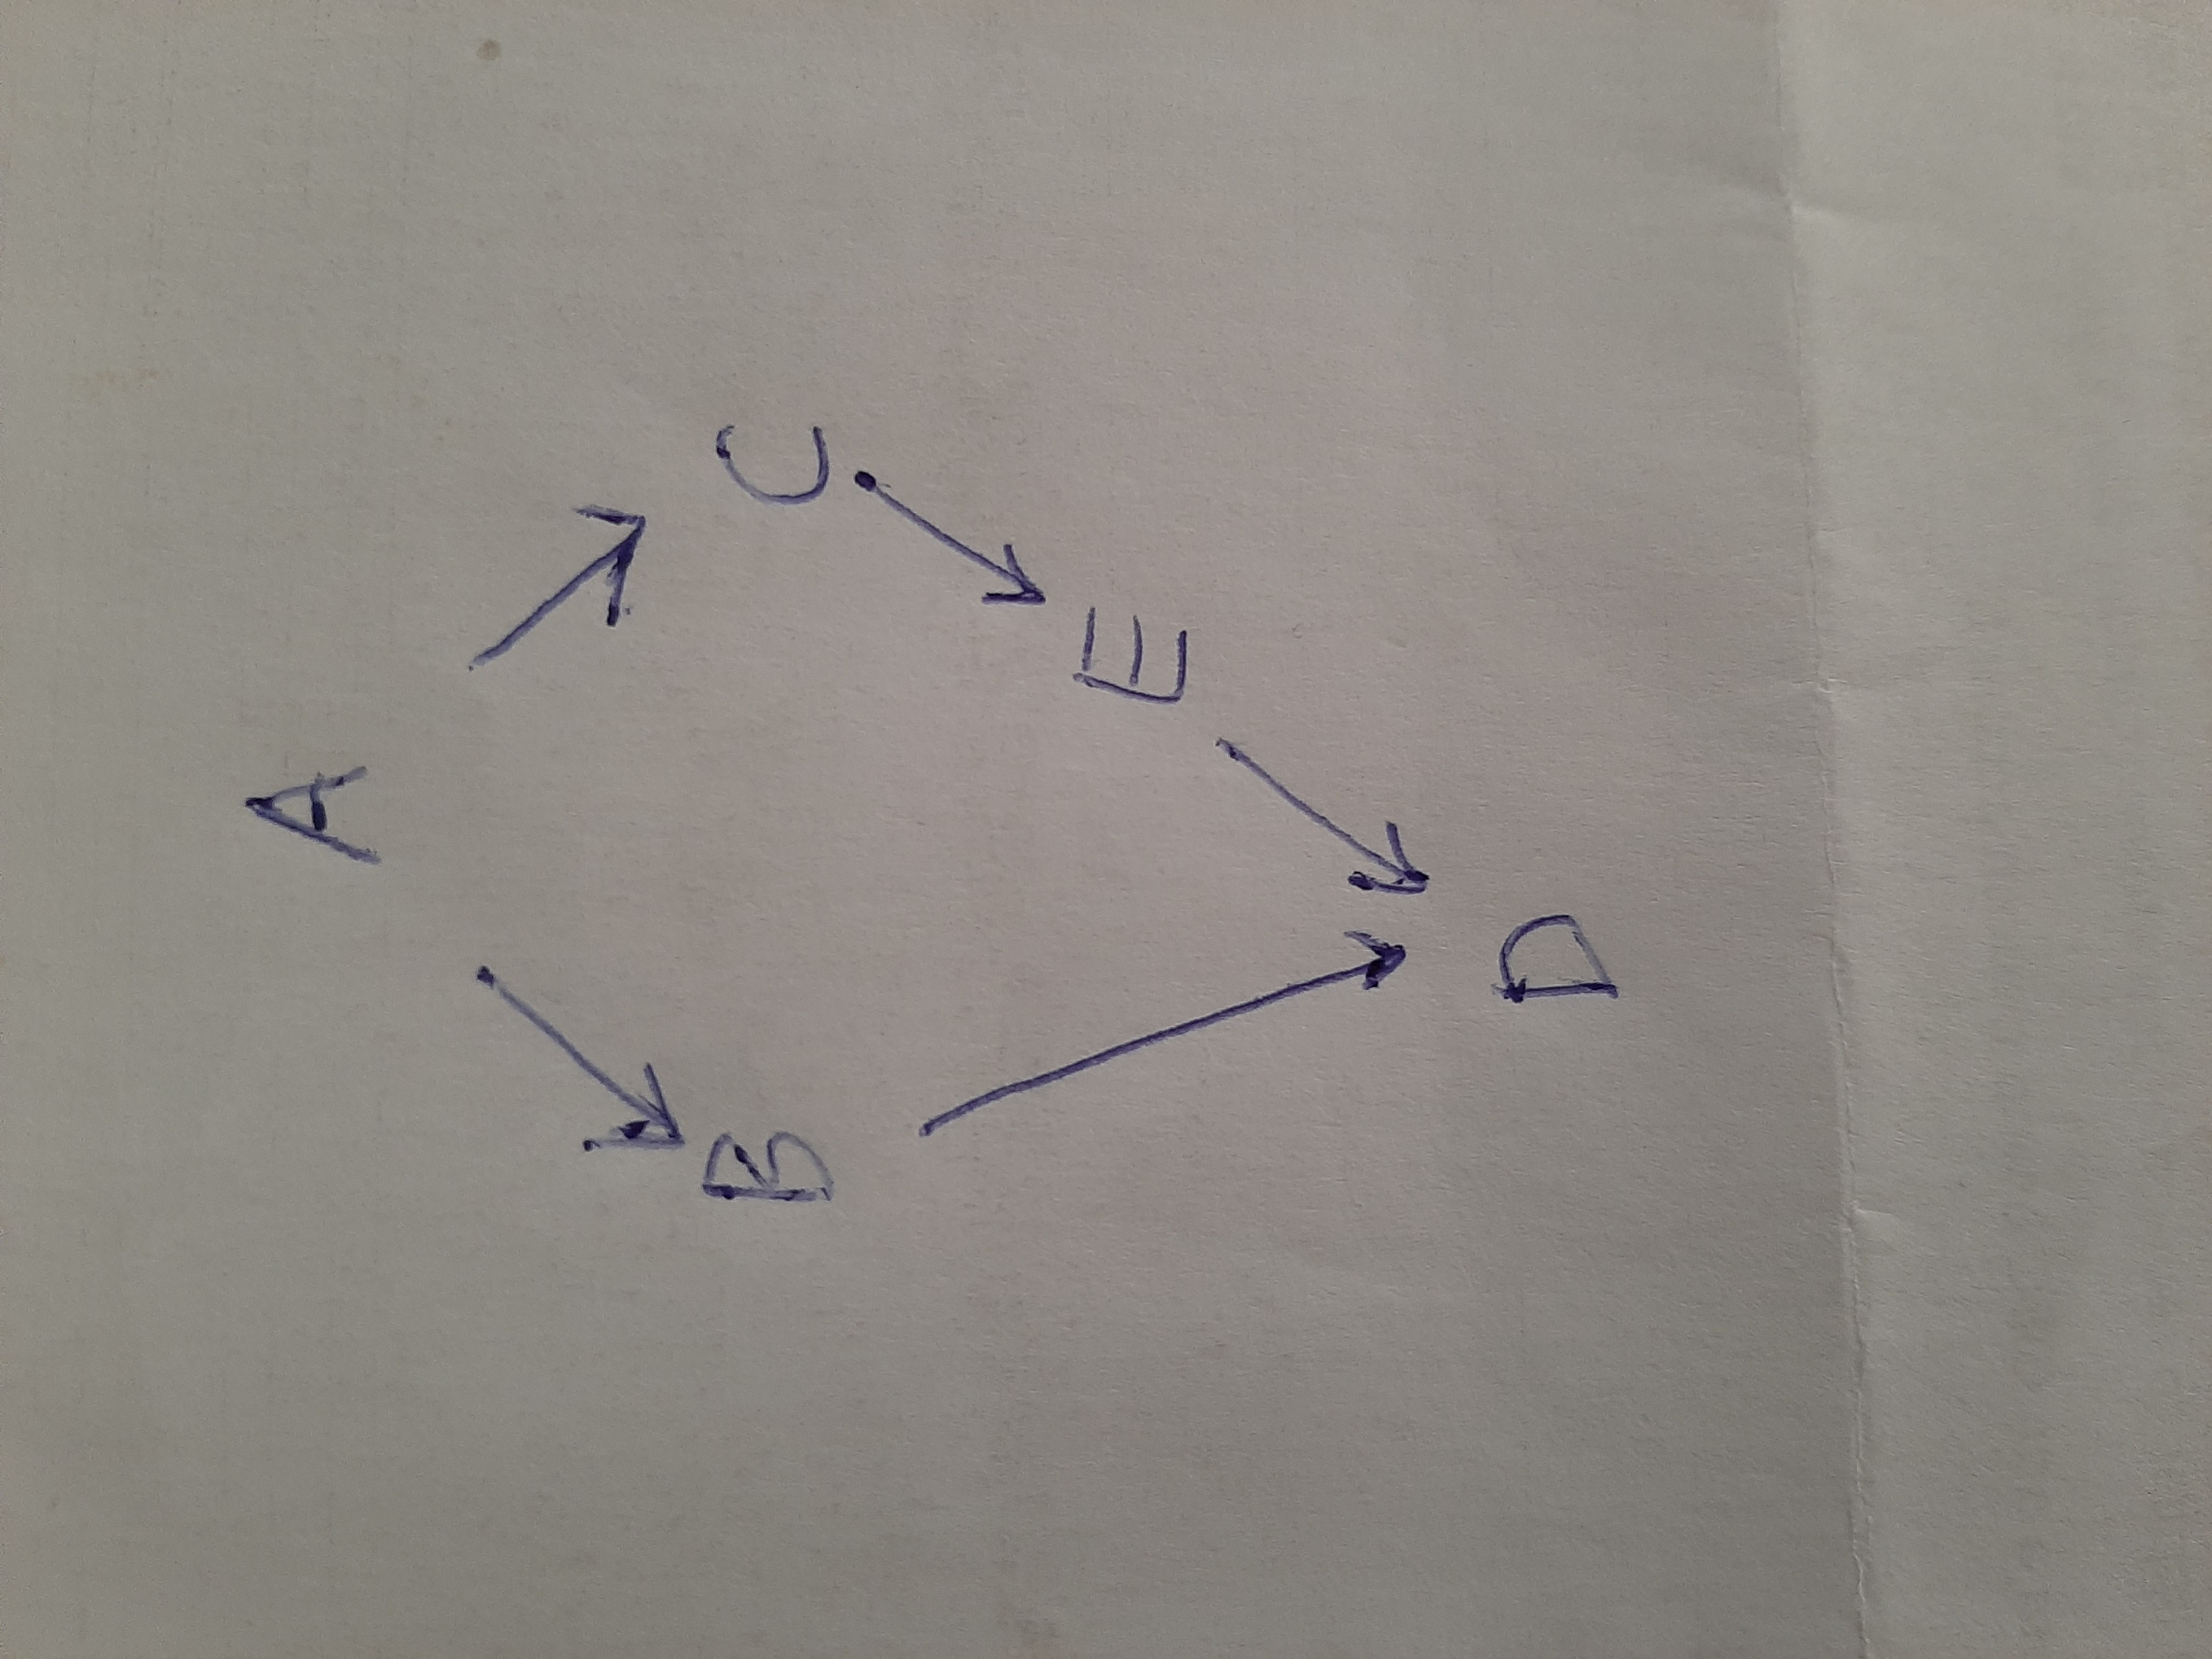 A
B C
E
D